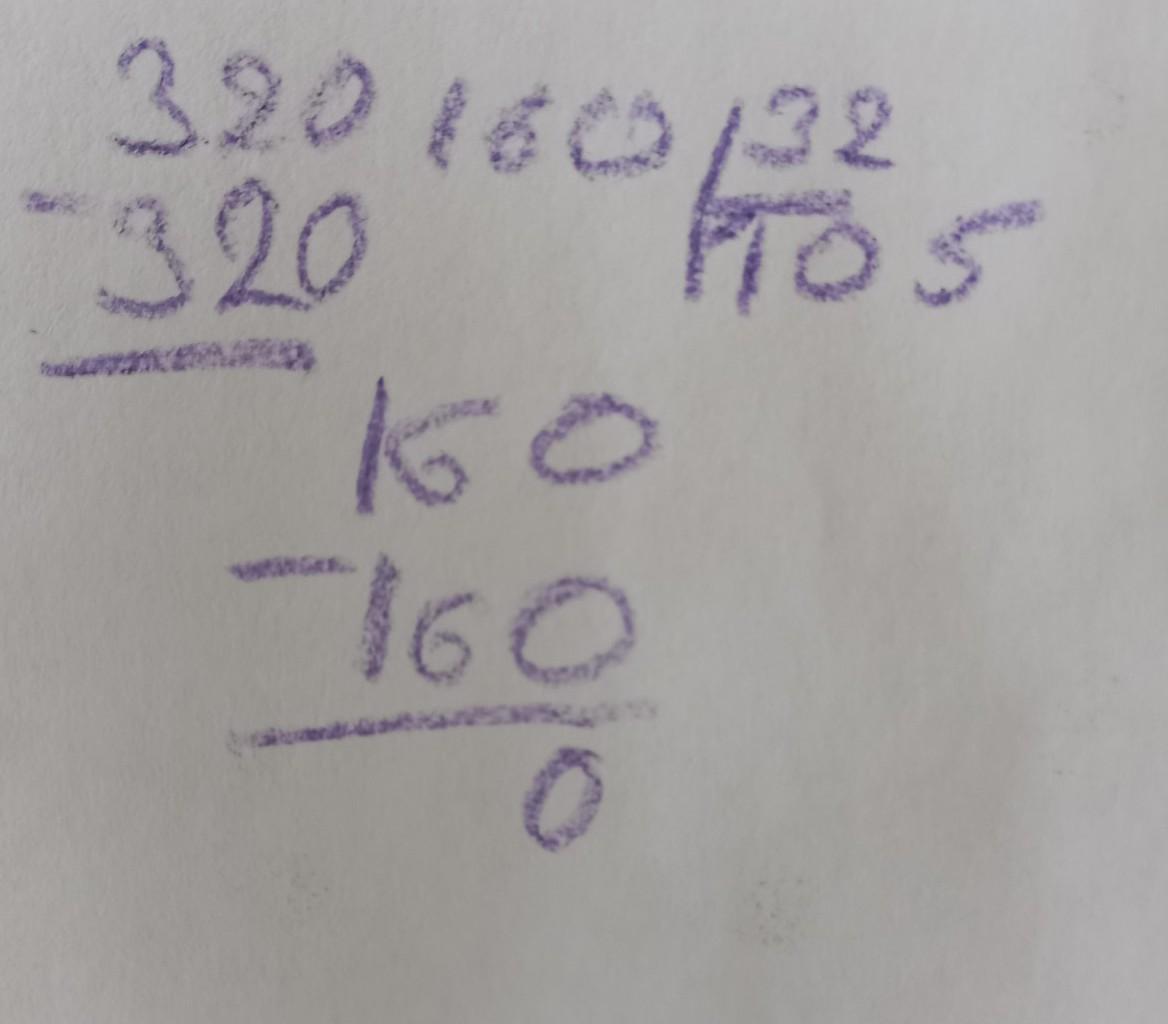 320 160 32
- 320 105
160
- 160
0